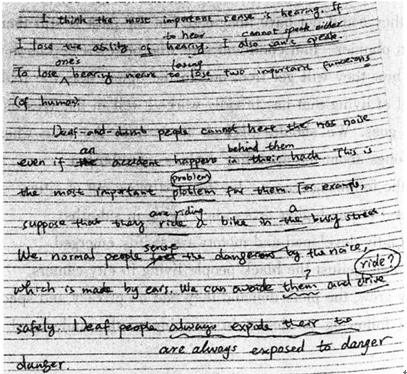 I think the most important sense is hearing. If
to hear cannot speak either
I lose the ability of hearing I also can't speak.
one's losing
To lose hearing means to lose two important functions
(of human).
Deaf-and-dumb people cannot here the noise
an behind them
even if the accident happens in their back. This is
problem
the most important ploblem for them. For example,
are riding a
suppose that they ride a bike in the busy street.
sense
We, normal people feel the dangerous by the noise,
ride?
?
which is made by cars. We can avoide them and drive
safely. Deaf people always expode their to
are always exposed to danger
danger.